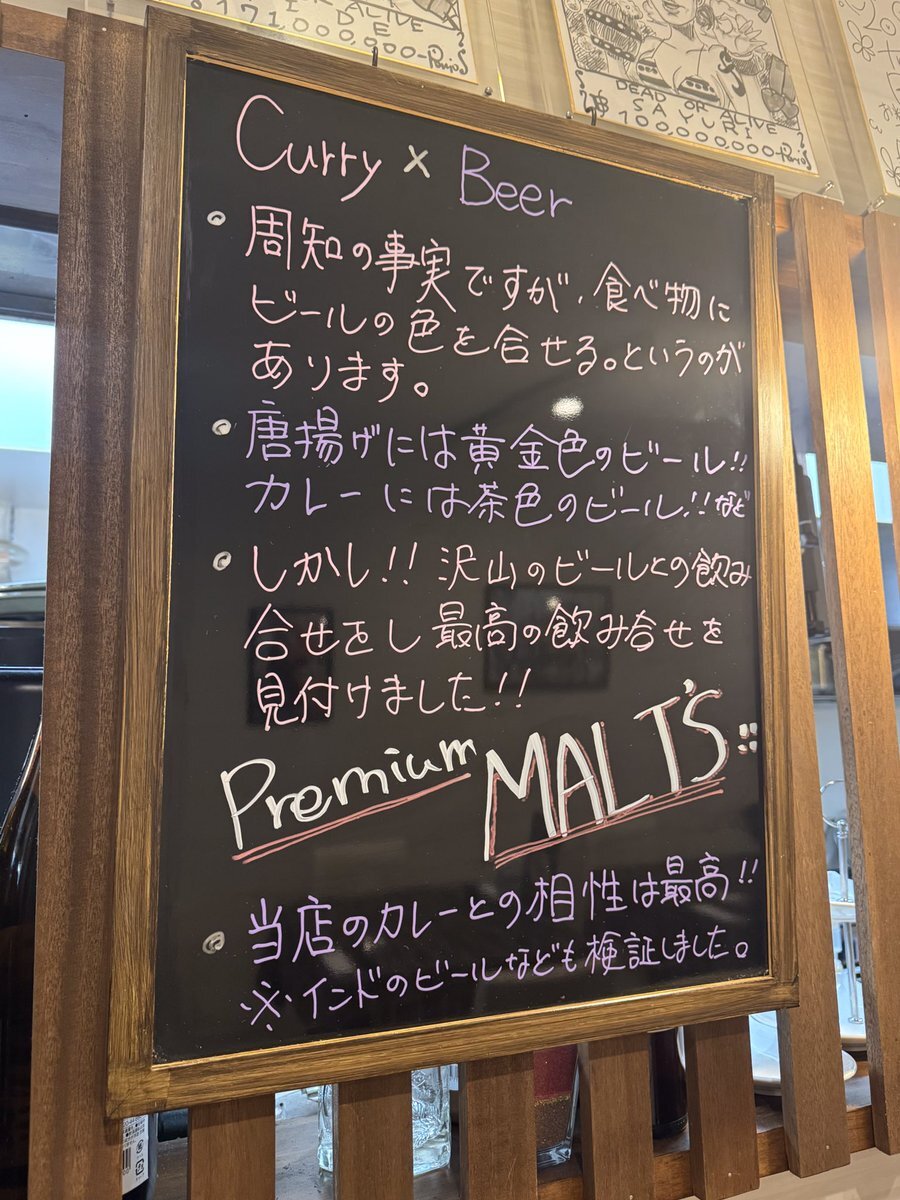 DEAD OR ALIVE
SAYURI
100,000,000-
Curry × Beer
• 周知の事実ですが、食べ物に
ビールの色を合せる。というのが
あります。
• 唐揚げには黄金色のビール!!
カレーには茶色のビール!!など
• しかし!! 沢山のビールとの飲み
合せをし最高の飲み合せを
見付けました!!
Premium MALT'S
• 当店のカレーとの相性は最高!!
※インドのビールなども検証しました。